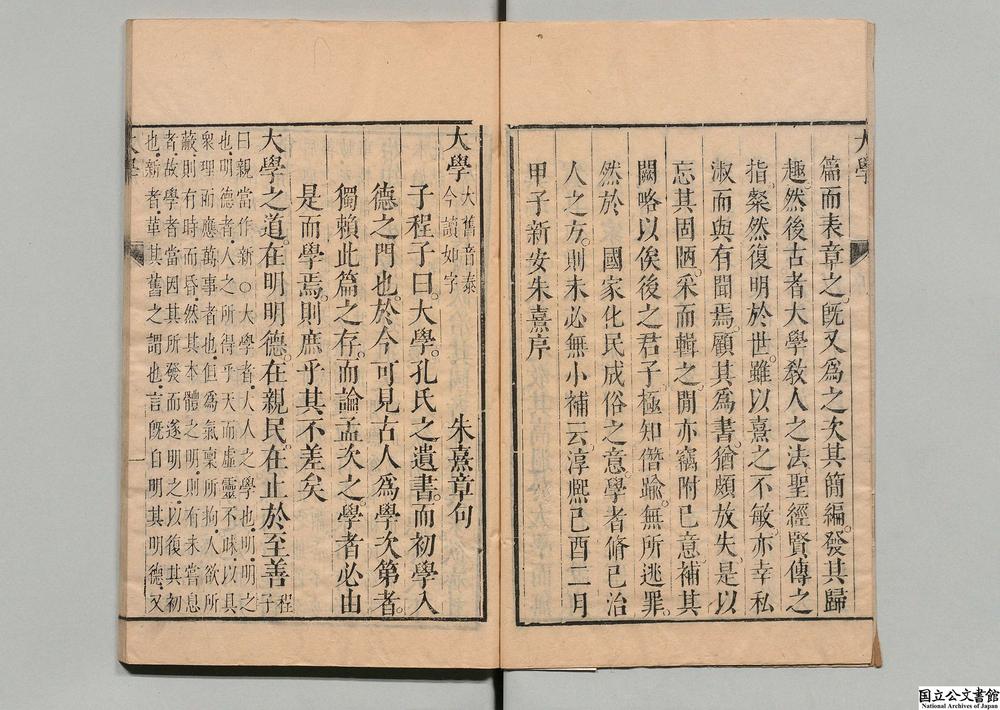 大學
篇而表章之。旣又爲之次其簡編。發其歸
趣。然後古者大學敎人之法。聖經賢傳之
指。粲然復明於世。雖以熹之不敏。亦幸私
淑而與有聞焉。顧其爲書。猶頗放失。是以
忘其固陋。采而輯之。閒亦竊附已意。補其
闕略。以俟後之君子。極知僭踰。無所逃罪。
然於 國家化民成俗之意。學者脩已治
人之方。則未必無小補云。淳熈己酉二月
甲子新安朱熹序
大學 大舊音泰
今讀如字
朱熹章句
子程子曰。大學。孔氏之遺書。而初學入
德之門也。於今可見古人爲學次第者。
獨賴此篇之存。而論孟次之。學者必由
是而學焉。則庶乎其不差矣
大學之道。在明明德。在親民。在止於至善 程
子
曰親當作新○大學者大人之學也明明之
也明德者人之所得乎天而虛靈不昧以具
衆理而應萬事者也但爲氣稟所拘人欲所
蔽則有時而昏然其本體之明則有未嘗息
者故學者當因其所發而遂明之以復其初
也新者革其舊之謂也言旣自明其明德又
大學
一
国立公文書館
National Archives of Japan